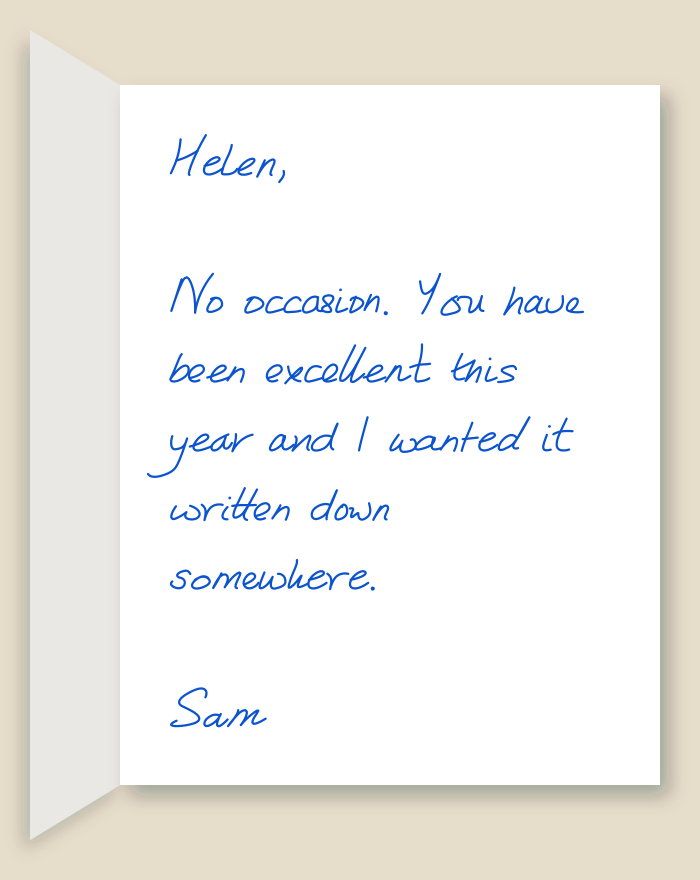 Helen,
No occasion. You have
been excellent this
year and I wanted it
written down
somewhere.
Sam